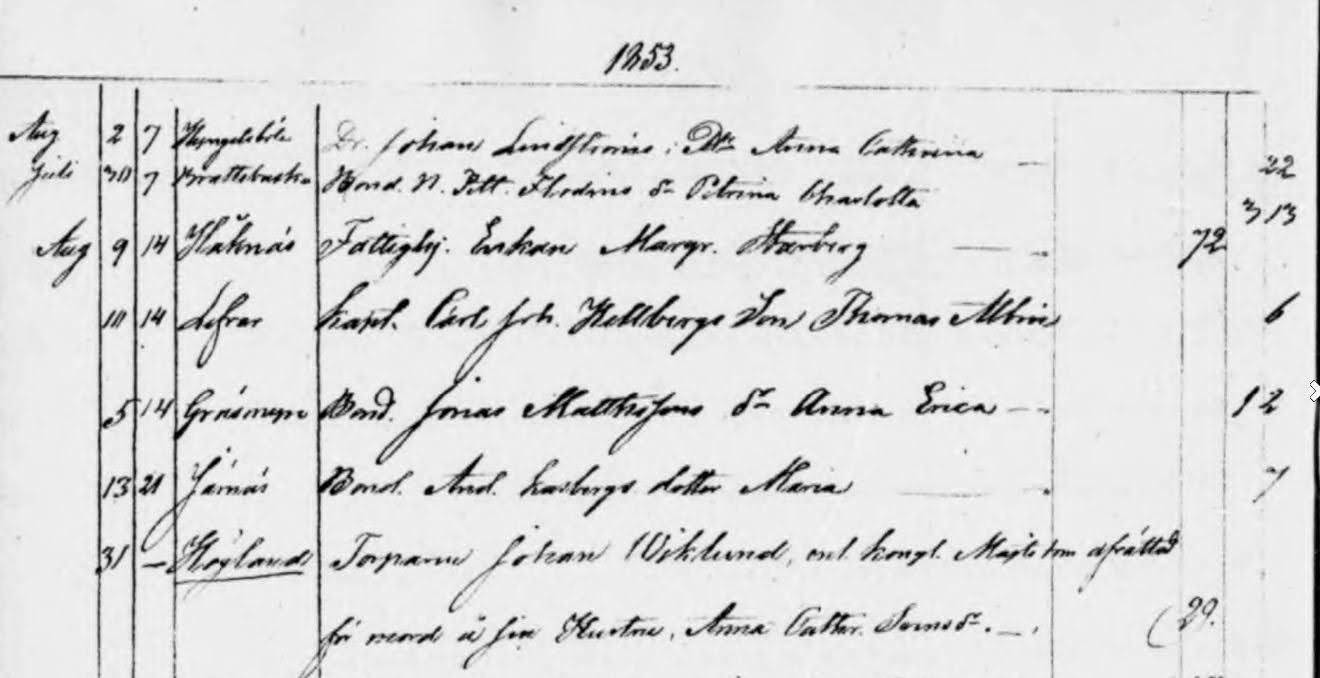 1853.
Aug 2 7 Dr. Johan Lindströms Dtr Anna Catharina 22
Juli 30 7 Brattsbacka Bond. N. Pett. Flodins dr Petrina Charlotta 3 13
Aug 9 14 Håknäs Fattighj. Enkan Margr. Starberg 72
10 14 Lefvar Kapl. Carl Joh. Hellbergs Son Thomas Albin 6
5 14 Gräsmyr Bond. Jonas Matthssons dr Anna Erica 12
13 21 Järnäs Bond. And. dotter Maria 7
31 Högland Torparen Johan Wiklund, enl. Kongl. Majts dom afrättad
för mord å sin Hustru, Anna Cathar. dr. 29.